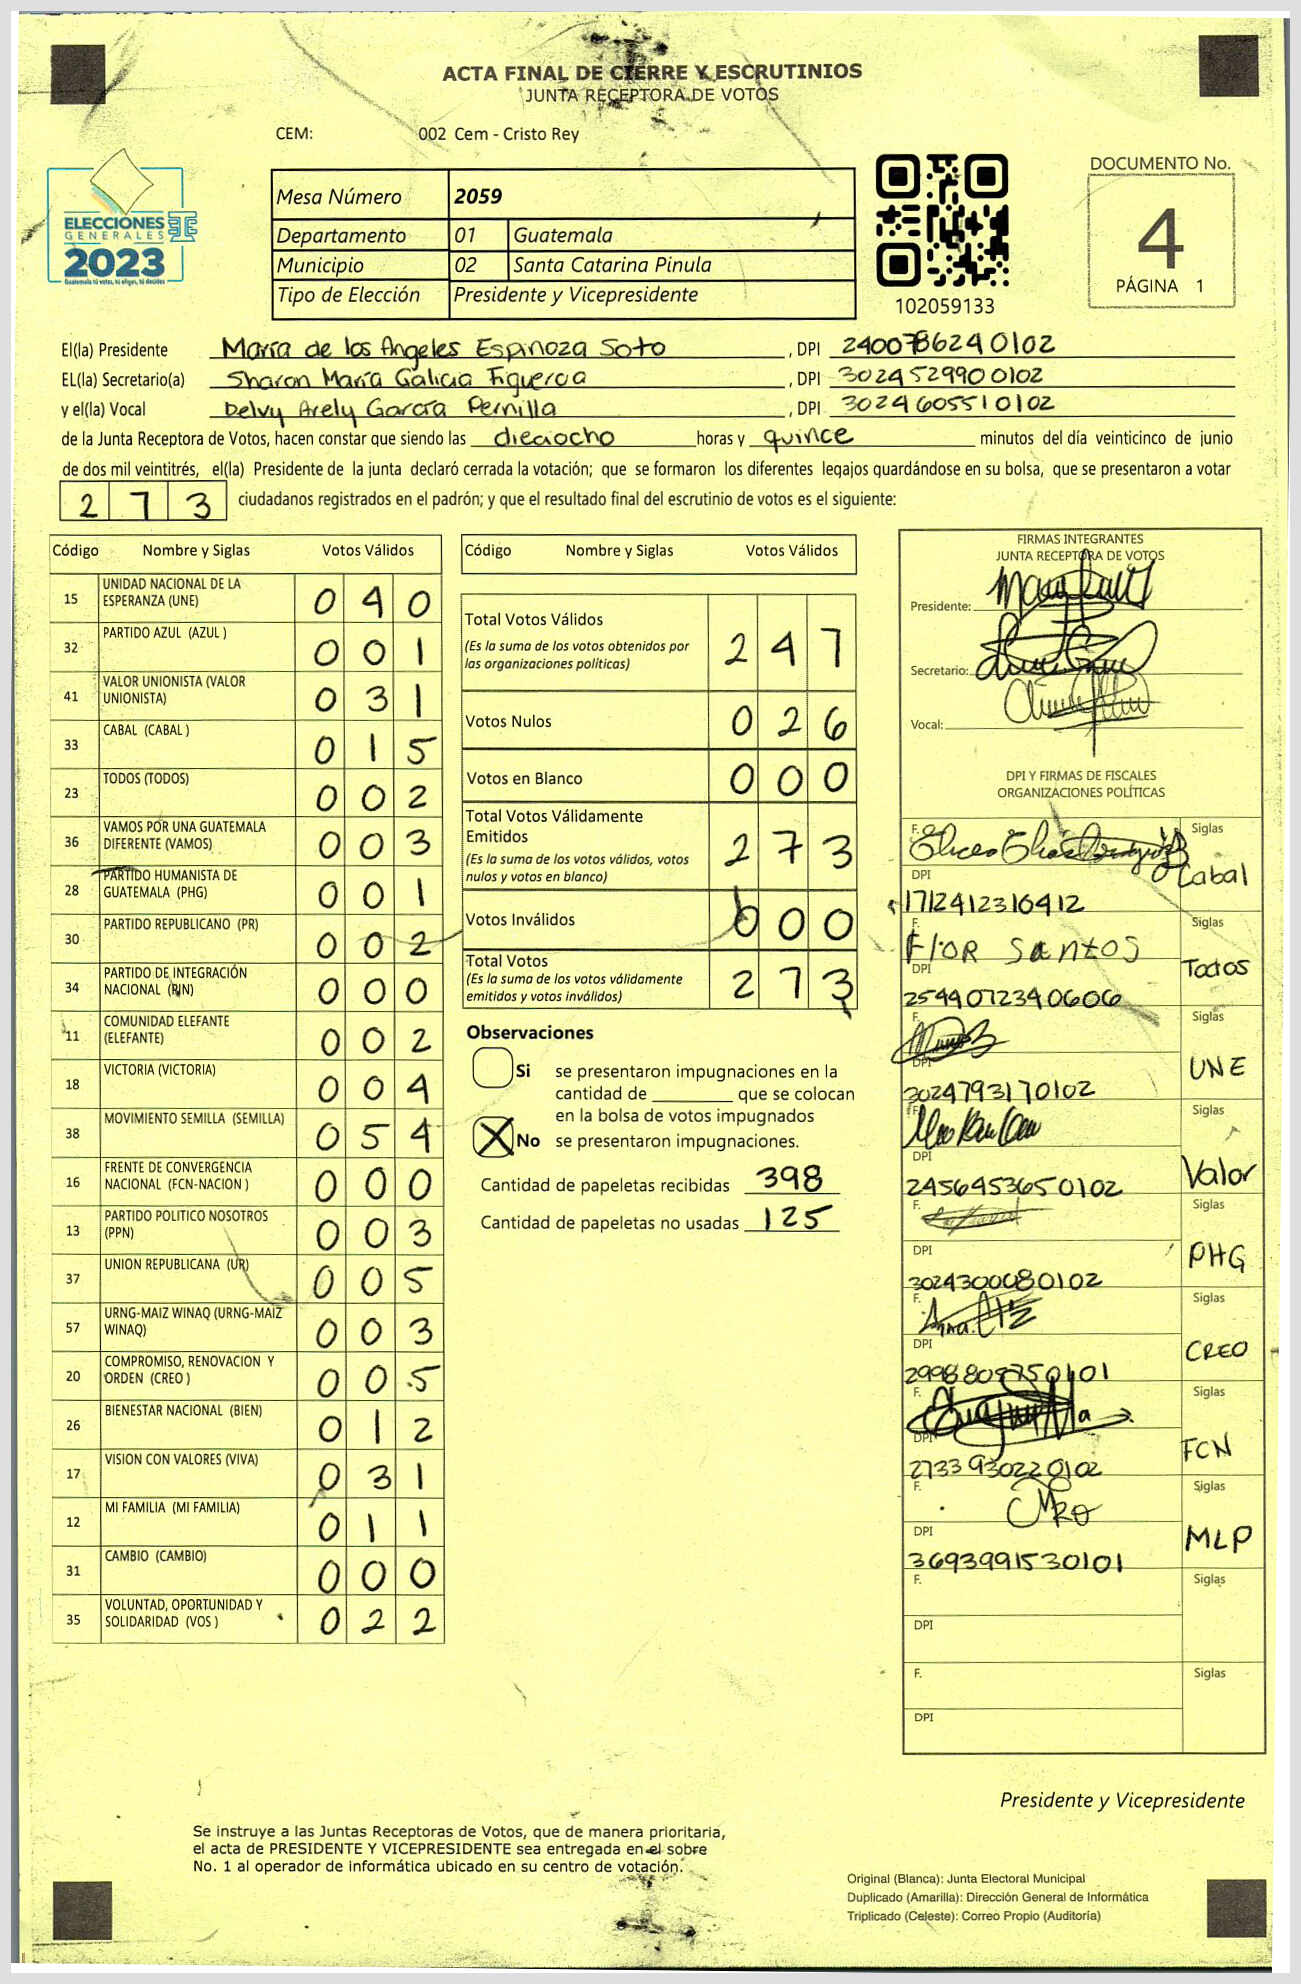 ACTA FINAL DE CIERRE Y ESCRUTINIOS
JUNTA RECEPTORA DE VOTOS
CEM: 002 Cem - Cristo Rey
ELECCIONES
GENERALES
2023
Guatemala tú votas, tú eliges, tú decides
Mesa Número 2059
Departamento 01 Guatemala
Municipio 02 Santa Catarina Pinula
Tipo de Elección Presidente y Vicepresidente
102059133
DOCUMENTO No.
4
PÁGINA 1
El(la) Presidente María de los Angeles Espinoza Soto , DPI 2400786240102
EL(la) Secretario(a) Sharon María Galicia Figueroa , DPI 3024529900102
y el(la) Vocal Delvy Arely García Pernilla , DPI 3024605510102
de la Junta Receptora de Votos, hacen constar que siendo las dieciocho horas y quince minutos del día veinticinco de junio
de dos mil veintitrés, el(la) Presidente de la junta declaró cerrada la votación; que se formaron los diferentes legajos guardándose en su bolsa, que se presentaron a votar
2 7 3 ciudadanos registrados en el padrón; y que el resultado final del escrutinio de votos es el siguiente:
Código Nombre y Siglas Votos Válidos
15 UNIDAD NACIONAL DE LA ESPERANZA (UNE) 0 4 0
32 PARTIDO AZUL (AZUL ) 0 0 1
41 VALOR UNIONISTA (VALOR UNIONISTA) 0 3 1
33 CABAL (CABAL ) 0 1 5
23 TODOS (TODOS) 0 0 2
36 VAMOS POR UNA GUATEMALA DIFERENTE (VAMOS) 0 0 3
28 PARTIDO HUMANISTA DE GUATEMALA (PHG) 0 0 1
30 PARTIDO REPUBLICANO (PR) 0 0 2
34 PARTIDO DE INTEGRACIÓN NACIONAL (PIN) 0 0 0
11 COMUNIDAD ELEFANTE (ELEFANTE) 0 0 2
18 VICTORIA (VICTORIA) 0 0 4
38 MOVIMIENTO SEMILLA (SEMILLA) 0 5 4
16 FRENTE DE CONVERGENCIA NACIONAL (FCN-NACION ) 0 0 0
13 PARTIDO POLITICO NOSOTROS (PPN) 0 0 3
37 UNION REPUBLICANA (UR) 0 0 5
57 URNG-MAIZ WINAQ (URNG-MAIZ WINAQ) 0 0 3
20 COMPROMISO, RENOVACION Y ORDEN (CREO ) 0 0 5
26 BIENESTAR NACIONAL (BIEN) 0 1 2
17 VISION CON VALORES (VIVA) 0 3 1
12 MI FAMILIA (MI FAMILIA) 0 1 1
31 CAMBIO (CAMBIO) 0 0 0
35 VOLUNTAD, OPORTUNIDAD Y SOLIDARIDAD (VOS ) 0 2 2
Código Nombre y Siglas Votos Válidos
Total Votos Válidos 2 4 7
(Es la suma de los votos obtenidos por
las organizaciones políticas)
Votos Nulos 0 2 6
Votos en Blanco 0 0 0
Total Votos Válidamente
Emitidos 2 7 3
(Es la suma de los votos válidos, votos
nulos y votos en blanco)
Votos Inválidos 0 0 0
Total Votos 2 7 3
(Es la suma de los votos válidamente
emitidos y votos inválidos)
Observaciones
Si se presentaron impugnaciones en la
cantidad de ________ que se colocan
en la bolsa de votos impugnados
X No se presentaron impugnaciones.
Cantidad de papeletas recibidas 398
Cantidad de papeletas no usadas 125
FIRMAS INTEGRANTES
JUNTA RECEPTORA DE VOTOS
Presidente:
Secretario:
Vocal:
DPI Y FIRMAS DE FISCALES
ORGANIZACIONES POLÍTICAS
F. Siglas
Cabal
DPI
1712412316412
F. Flor Santos Siglas
Todos
DPI
2544072340606
F. Siglas
UNE
DPI
3024793170102
F. Siglas
Valor
DPI
2456453650102
F. Siglas
PHG
DPI
3024300080102
F. Siglas
CREO
DPI
F. Siglas
FCN
DPI
2733930220102
F. Siglas
MLP
DPI
3693991530101
F. Siglas
DPI
F. Siglas
DPI
Presidente y Vicepresidente
Se instruye a las Juntas Receptoras de Votos, que de manera prioritaria,
el acta de PRESIDENTE Y VICEPRESIDENTE sea entregada en el sobre
No. 1 al operador de informática ubicado en su centro de votación.
Original (Blanca): Junta Electoral Municipal
Duplicado (Amarilla): Dirección General de Informática
Triplicado (Celeste): Correo Propio (Auditoría)